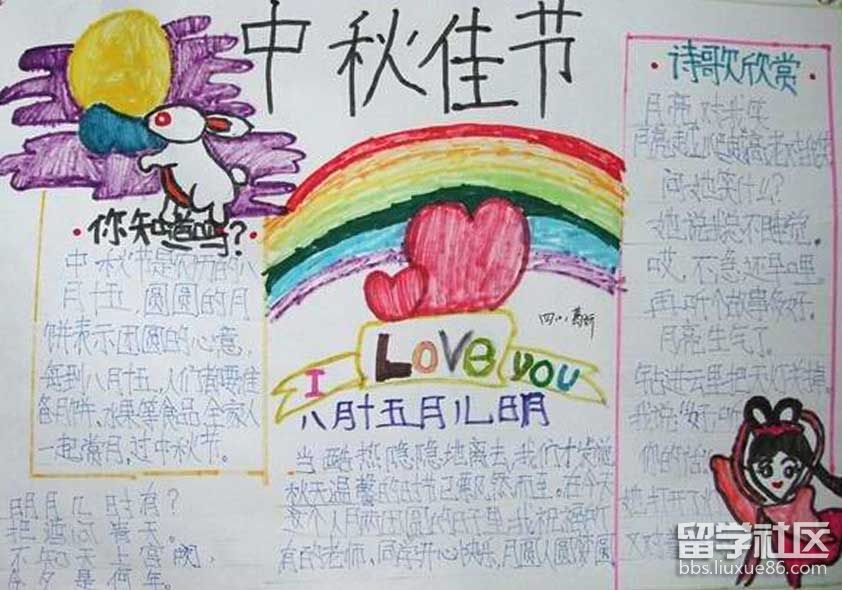 中秋佳节
你知道吗?
中秋节是农历的八
月十五,圆圆的月
饼表示团圆的心意,
每到八月十五,人们都要准
备月饼、水果等食品,全家人
一起赏月,过中秋节。
明月几时有?
把酒问青天。
不知天上宫阙,
今夕是何年。
I LOVE YOU
八月十五月儿明
当酷热隐隐地离去,我们才发现
秋天温馨的时节已悄然而至。在今天
这个人月两团圆的日子里,我祝福所
有的老师、同学开心快乐,月圆人圆梦圆
诗歌欣赏
月亮,对我笑
问她笑什么?
她说我总不睡觉。
哎,不急还早哩,
再听个故事多好。
月亮生气了。
她打开了
又对着
留学社区
bbs.liuxue86.com